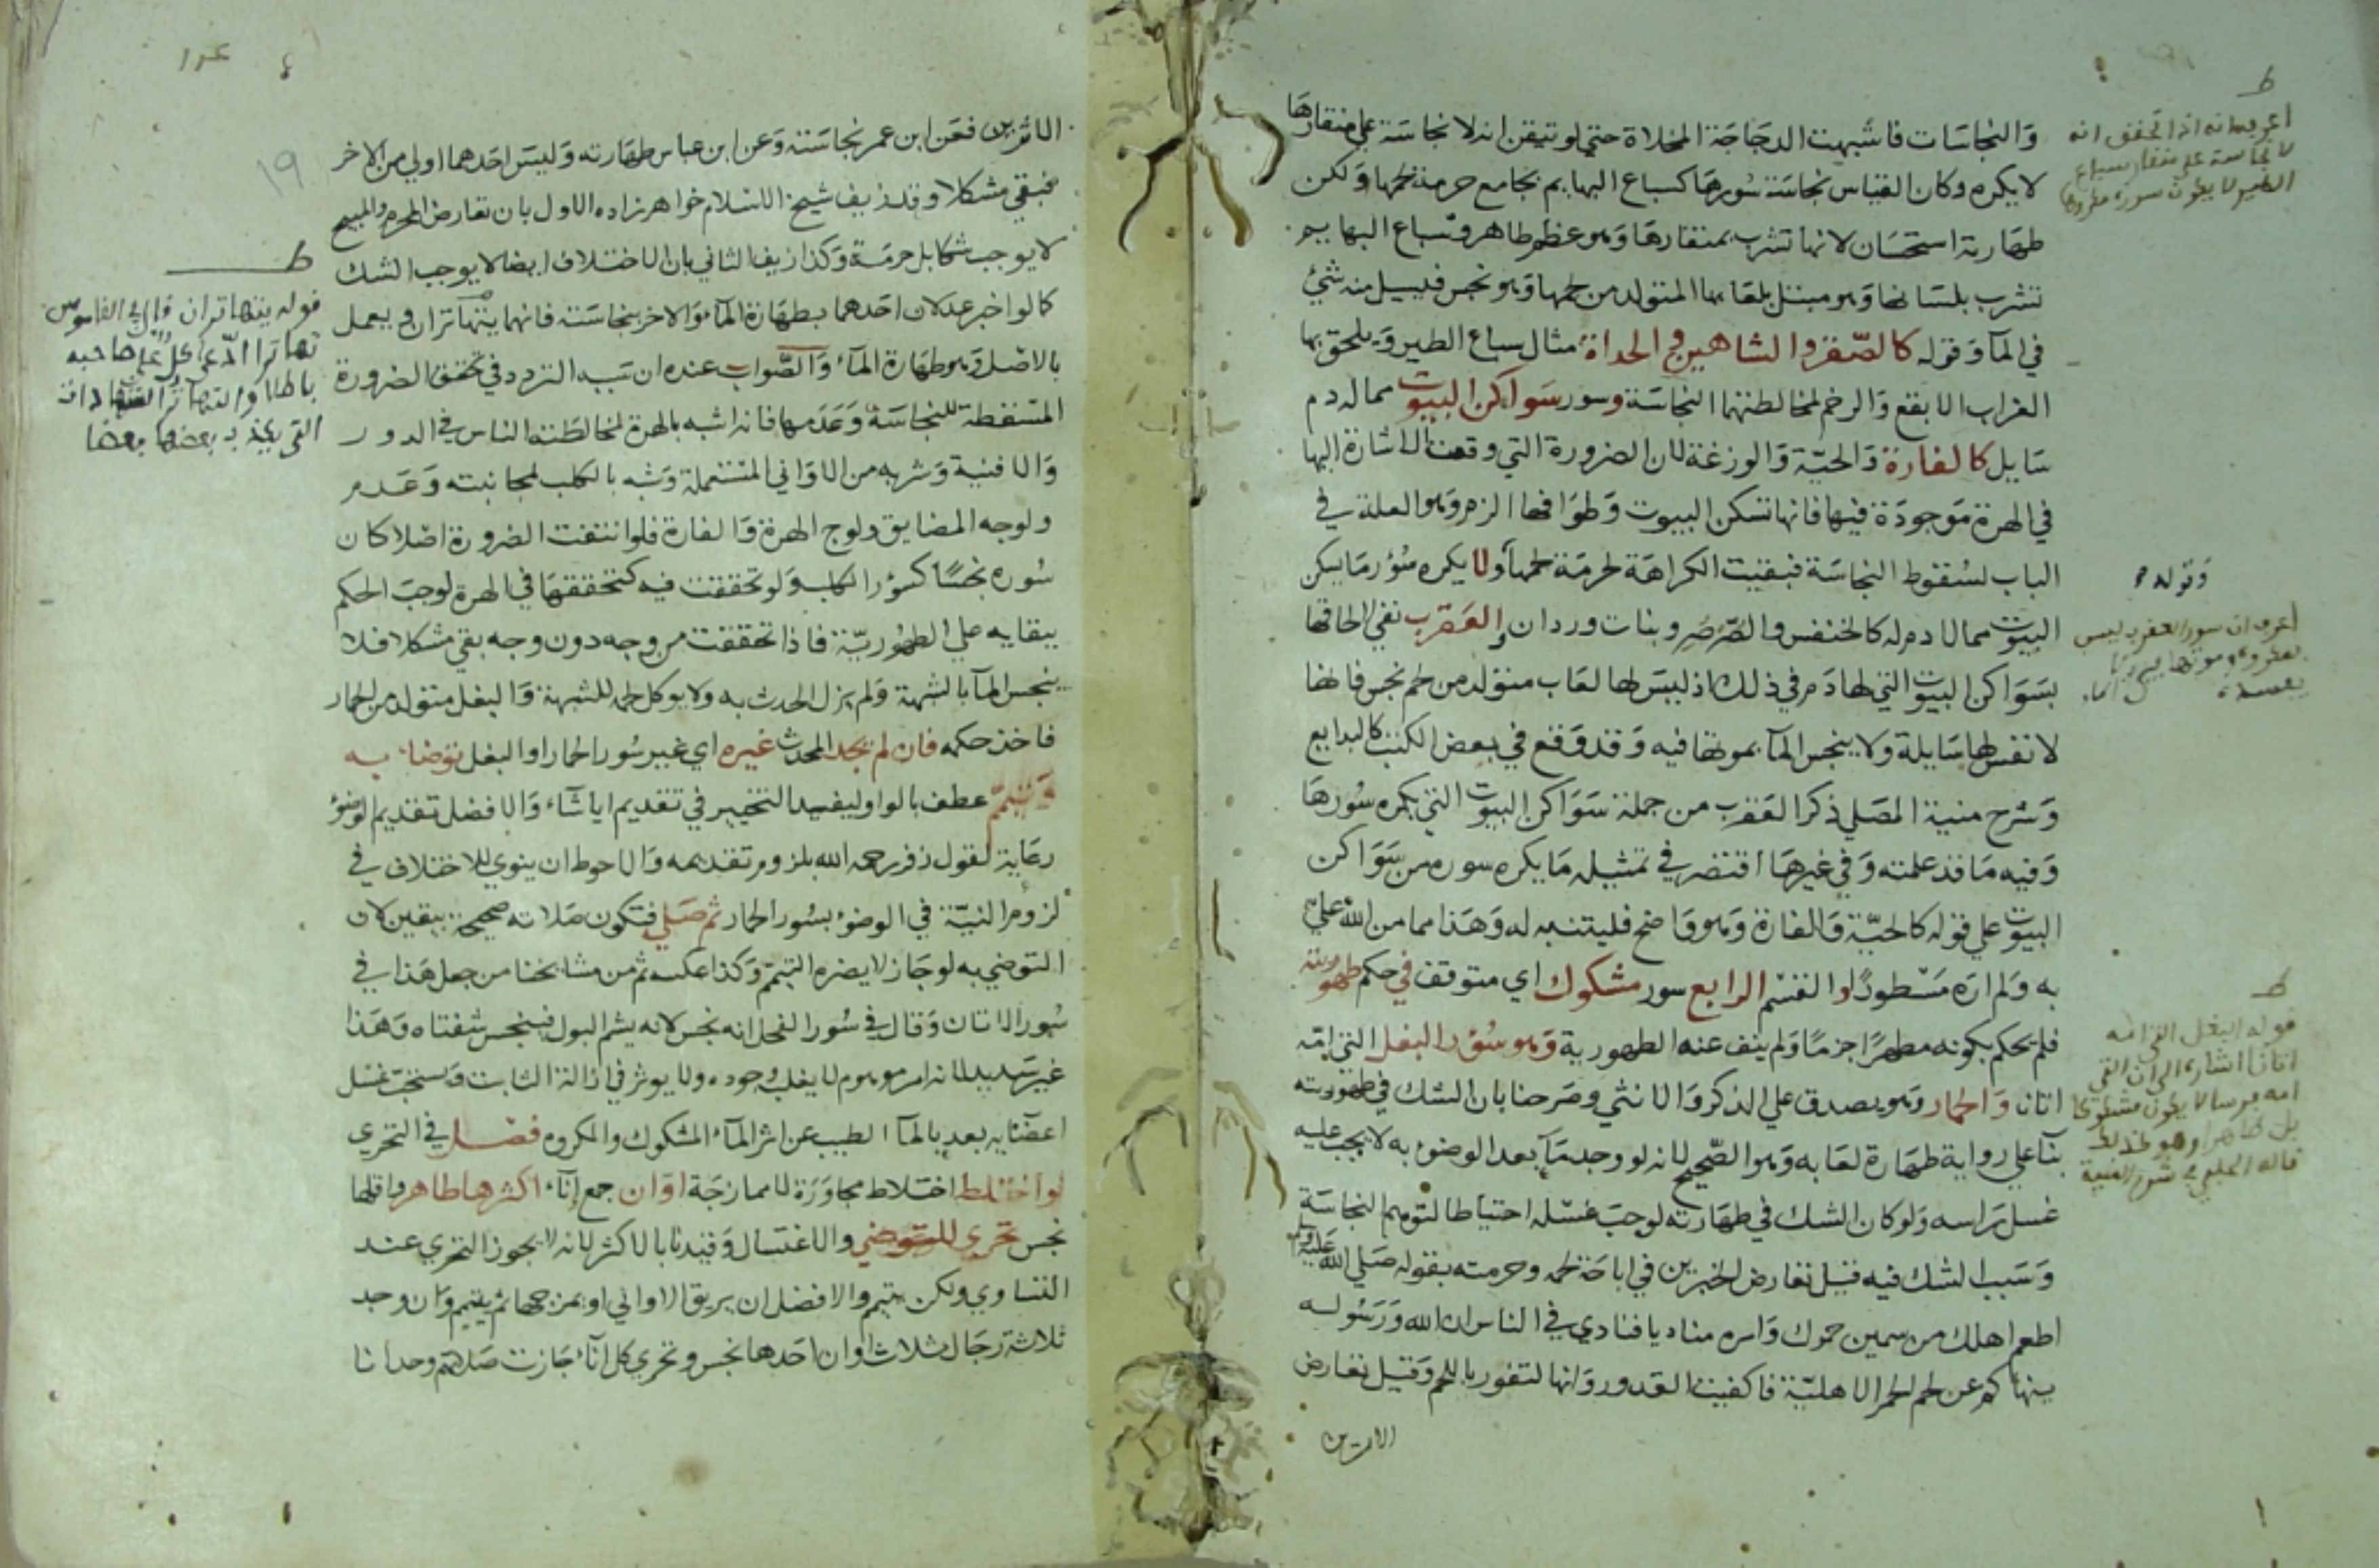 وَالنجاسَات فاشبهت الدجَاجَة المخلاة حتي لو تيقن انه لا نجاسَة علي منقارهَا
لا يكره وكان القياس نجاسَة سُورهَا كسباع البهايم بجامع حرمة لحمها وَلكن
طهَارته استحسَان لانها تشرب بمنقارهَا وَهو عظم طاهر وسباع البهايم
تشرب بلسَانها وَهو مبتل بلعَابها المتولد من لحمها وَهو نجس فيسيل منه شئ
في المآ وَقوله كالصّقر والشاهين والحداة مثال سباع الطير وَيلحق بها
الغراب الابقع وَالرخم لمخالطتهما النجاسَة وسور سَواكن البيوت مما له دم
سَايل كالفارة وَالحيّة وَالوزغة لان الضرورة التي وقعت الاشارة اليها
في الهرة مَوجودَة فيها فانها تسكن البيوت وَطوَافها الزم وَهو العلة في
الباب لسُقوط النجاسَة فبقيت الكراهَة لحرمَة لحمها وَلا يكره سُؤر مَا يسكن
البيوت مما لا دم له كالخنفس والصّرصر وبنات وردان والعَقرب نفي لالحاقها
بسَوَاكن البيوت التي لها دَم في ذلك اذ ليسَ لها لعَاب متولد من لحم نجس فانها
لا نفس لها سَايلة ولا ينجس المآ بموتها فيه وَقد وَقع في بعض الكتب كالبدايع
وَشرح منية المصَلي ذكر العَقرب من جملة سَوَاكن البيوت التي يكره سُورهَا
وَفيه مَا قد علمته وَفي غيرهَا اقتصر في تمثيله مَا يكره سوره من سَوَاكن
البيوت علي قوله كالحيّة وَالفارة وَهو وَاضح فليتنبه له وَهَذا مما من الله علي
به وَلم ارَه مَسْطورًا والقسْم الرابع سور مشكوك اي متوقف في حكم طهوريته
فلم يحكم بكونه مطهرًا جزمًا وَلم ينف عنه الطهورية وَهو سُؤر البغل التي امّه
اتان وَالحمار وَهو يصدق علي الذكر وَالانثي وصَرحنا بان الشك في طهوريته
بنآ علي رواية طهَارة لعَابه وَهو الصّحيح لانه لو وجد مَآ بعد الوضوء به لا يجب عليه
غسل رَاسه وَلو كان الشك في طهَارته لوجبَ غسله احتياطا لتوهم النجاسَة
وَسَبب الشك فيه قيل تعارض الخبرين في اباحَة لحمه وحرمته بقوله صَلي الله عَليه وَسلم
اطعم اهلك من سمين حمرك وَامره مناديا فنادي في الناس ان الله وَرَسُوله
ينهاكم عن لحم الحمر الاهليّة فاكفيت القدور وَانها لتفور باللحم وَقيل تعارض
الاثرين
اعرابه انه اذا تحقق انه
لا نجاسة علي منقار سباع
الطير لا يكون سوره مكروها
وقوله
اعرف ان سور العقرب ليس
بمكروه وموتها ليس
يفسده
ط
قوله البغل التي امه
اتان اشارة الي ان التي
امه فرسا لا يكون مشكوكا
بل طاهرا وهو كذلك
قاله الحلبي في شرح المنية
الاثرين فعَن ابن عمر نجاسَته وَعن ابن عباس طهَارته وَليسَ احَدهما اولي من الاخر
فبقي مشكلا وقد زيف شيخ الاسلام خواهر زاده الاول بان تعارض المحرم والمبيح
لا يوجب شكا بل حرمَة وَكذا زيف الثاني بان الاختلاف ايضا لا يوجب الشك
كما لو اخبر عدلان احَدهما بطهَارة المآ وَالاخر بنجاسَته فانهما يتهَاتران ويعمل
بالاصْل وَهو طهَارة المآء وَالصَّواب عنده ان سَبب التردد في تحقق الضرورة
المسْقطة للنجاسَة وَعَدَمها فانه اشبه بالهرة لمخالطَته الناس في الدور
وَالافنية وَشربه من الاوَاني المسْتعملة وَشبه بالكلب لمجانبته وَعَدم
ولوجه المضايق ولوج الهرة وَالفارة فلو انتفت الضرورة اصْلا كان
سُوره نجسًا كسؤر الكلب وَلو تحققت فيه كتحققهَا في الهرة لوجبَ الحكم
ببقايه علي الطهُوريّة فاذا تحققت من وجه دون وجه بقي مشكلا فلا
ينجس المآ بالشبهة وَلم يزل الحدث به ولا يوكل لحمه للشبهة وَالبغل متولد من الحمار
فاخذ حكمه فان لم يجد المحدث غيره اي غير سُور الحمار او البغل توَضا به
وَتيمّم عطف بالواو ليفيد التخيير في تقديم ايا شآء وَالافضل تقديم الوضوء
رعَاية لقول زفر رحمه الله بلزوم تقديمه وَالاحوط ان ينوي للاختلاف في
لزوم النيّة في الوضوء بسُور الحمار ثم صَلي فتكون صَلاته صحيحة بيقين لان
التوضي به لو جَاز لا يضره التيمّم وَكذا عكسه ثم من مشايخنا من جعل هَذا في
سُور الاتان وَقال في سُور الفحل انه نجس لانه يشم البول فينجس شفتاه وَهَذا
غير سَديد لانه امر موهوم لا يغلب وجوده ولا يوثر في ازالة الثابت وَيستحَبّ غسْل
اعضَائه بعد بالمآ الطيب عن اثر المآء المشكوك والمكروه فصْل في التحري
لو اختلط اختلاط مجاوَرَة لا ممازجَة اوَان جمع اِنَآء اكثرها طاهر واقلها
نجس تحري للتوضي والاغتسال وَقيدنا بالاكثر لانه لا يجوز التحري عند
التساوي ولكن يتيمم والافضل ان يريق الاواني او يمزجها ثم يتيمم وَان وجد
ثلاثة رجَال ثلاث اوان احَدها نجس وتحري كل اِنآء جَازت صَلاتهم وحدانا
١٩
ط
قوله يتهاتران قال في القاموس
تهاترا ادّعي كل علي صاحبه
باطلا والتهاتر الشهادات
التي يكذب بعضها بعضا